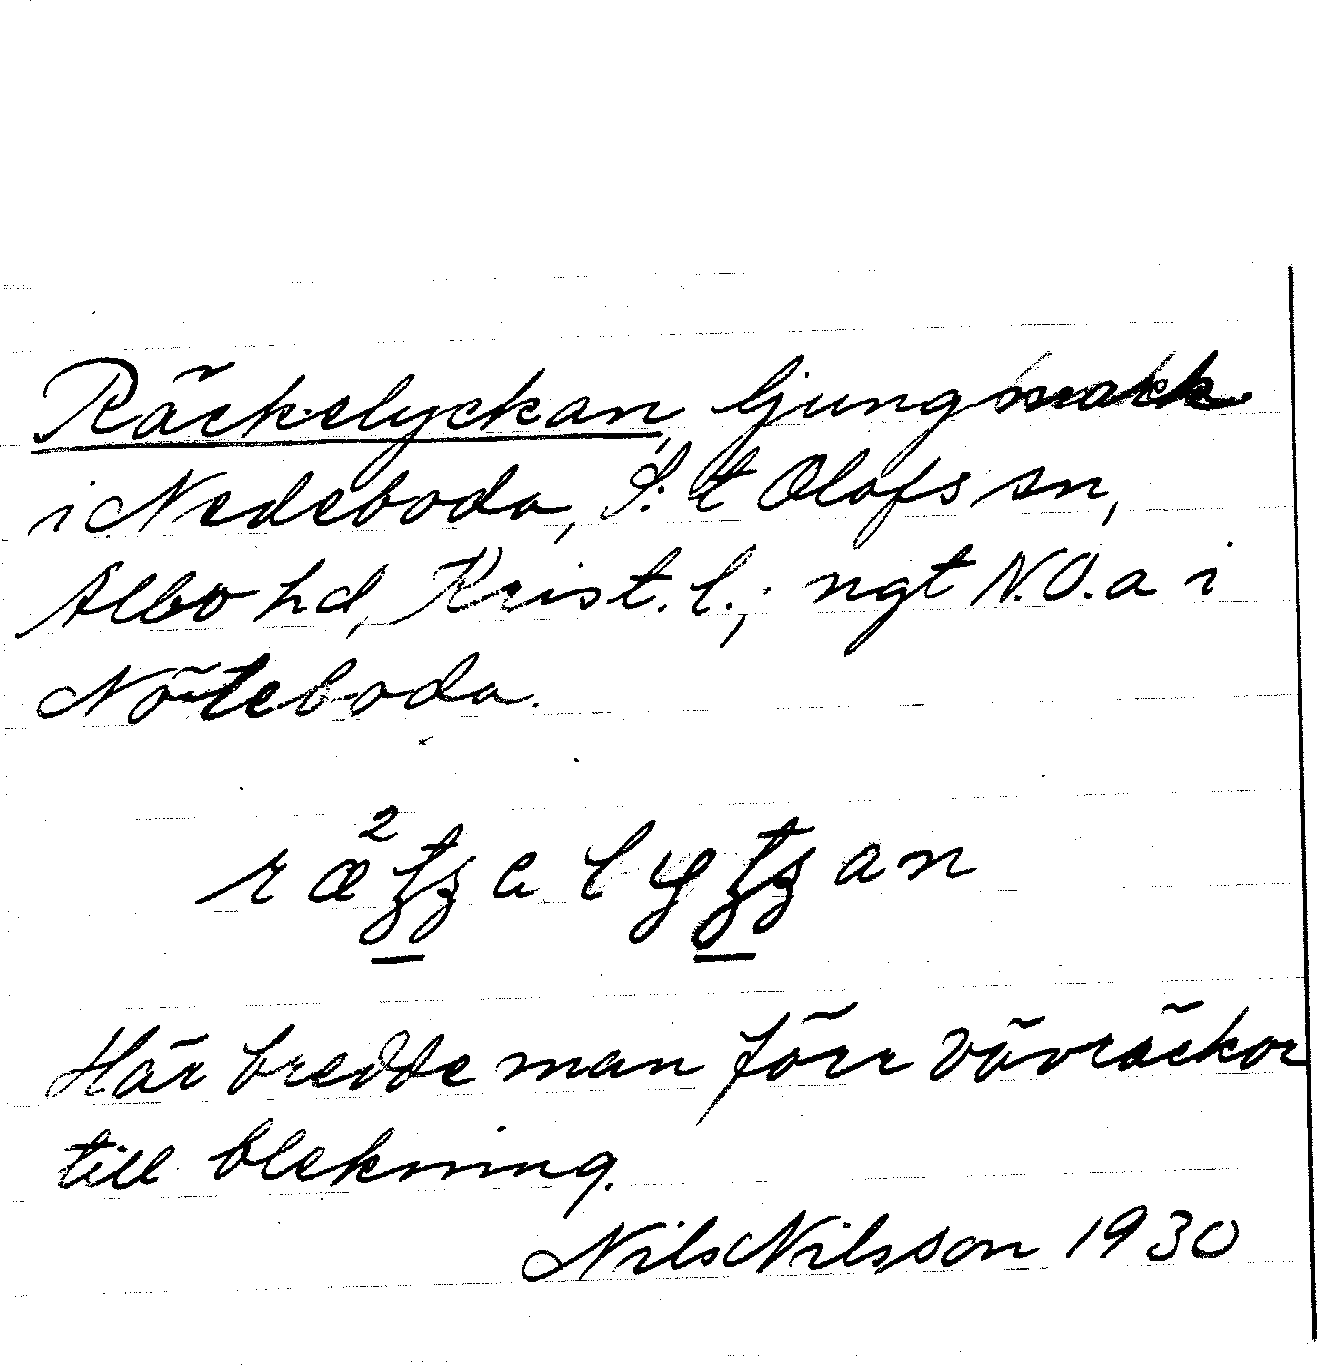 Räckelyckan, ljungbackk
i Nedeboda, S:t Olofs sn,
Albo hd, Krist. l.; ngt N.O. a i
Nöteboda.
Här bredde man förr vävräckor
till blekning.
Nils Nilsson 1930